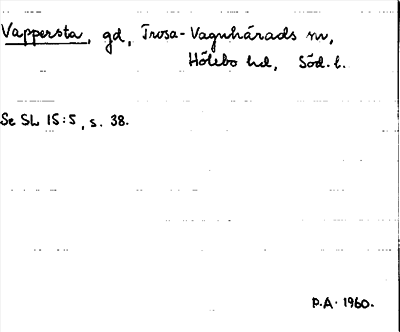 Vappersta, gd, Trosa-Vagnhärads sn,
Hölebo hd, Söd. l.
Se SL 15:5, s. 38.
P.A. 1960.